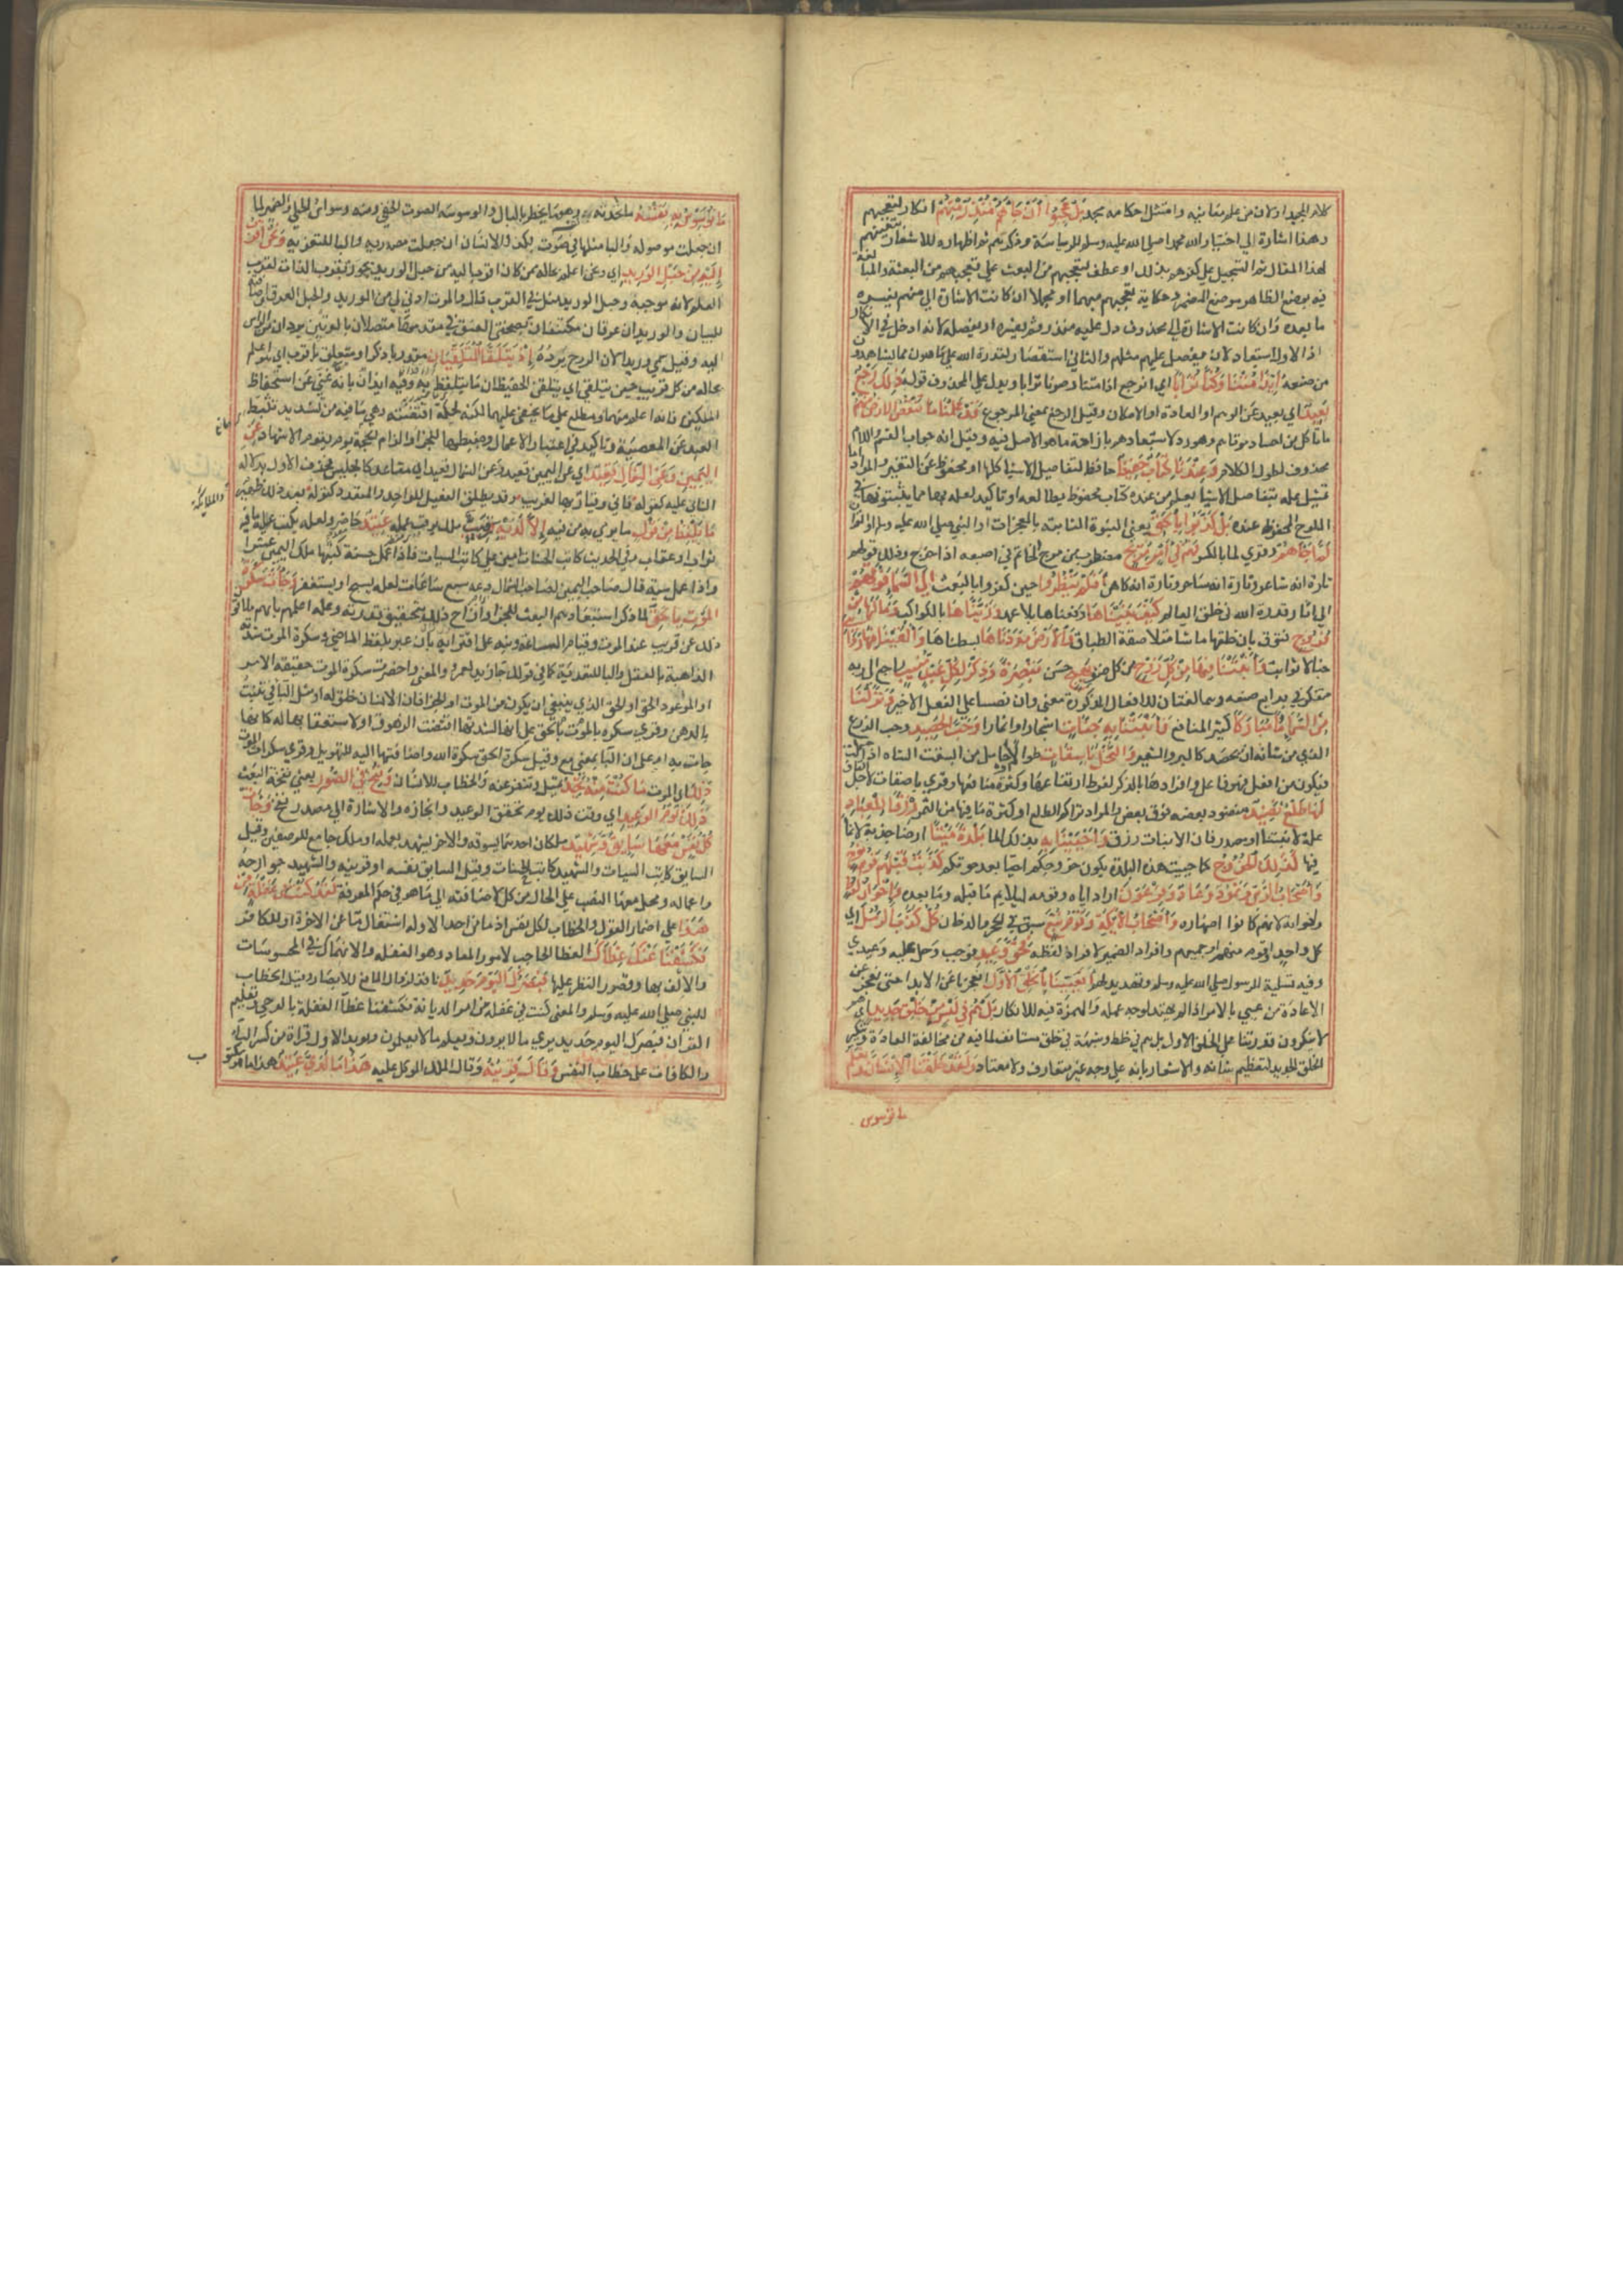 كلام المجيد اولان من علم معانيه وامتثل احكامه مجد بَلْ عَجِبُوا أَنْ جَاءَهُمْ مُنْذِرٌ مِنْهُمْ انكار لتعجبهم
لهذا المقال ثم التسجيل على كفرهم بذلك او عطف لتعجبهم من البعث على تعجبهم من البعثة والمبالغة
فيه بوضع الظاهر موضع المضمر وحكاية تعجبهم مبهما او مجملا ان كانت الاشارة الى مبهم يفسره
ما بعده وان كانت الاشارة الى محذوف دل عليه منذر ثم تفسيره او تفصيله لانه ادخل في الانكار
اذ الاول استبعاد لان يفضل عليهم مثلهم والثاني استقصار لقدرة الله على ما هو اهون مما يشاهدون
من صنعه أَئِذَا مِتْنَا وَكُنَّا تُرَابًا اي انرجع اذا متنا وصرنا ترابا ويدل على المحذوف قوله ذَلِكَ رَجْعٌ
بَعِيدٌ اي بعيد عن الوهم او العادة او الامكان وقيل الرجع بمعنى المرجوع قَدْ عَلِمْنَا مَا تَنْقُصُ الْأَرْضُ مِنْهُمْ
ما تاكل من اجساد موتاهم وهو رد لاستبعادهم بازاحة ما هو الاصل فيه وقيل انه جواب القسم واللام
محذوف لطول الكلام وَعِنْدَنَا كِتَابٌ حَفِيظٌ حافظ لتفاصيل الاشياء كلها او محفوظ عن التغير والمراد اما
تمثيل علمه بتفاصيل الاشياء بعلم من عنده كتاب محفوظ يطالعه او تاكيد لعلمه بها مما بثبوتها في
اللوح المحفوظ عنده بَلْ كَذَّبُوا بِالْحَقِّ يعني النبوة الثابتة بالمعجزات او النبي صلى الله عليه وسلم او القران
لَمَّا جَاءَهُمْ وقرئ لما بالكسر فَهُمْ فِي أَمْرٍ مَرِيجٍ مضطرب من مرج الخاتم في اصبعه اذا خرج وذلك قولهم
تارة انه شاعر وتارة انه ساحر وتارة انه كاهن أَفَلَمْ يَنْظُرُوا حين كفروا بالبعث إِلَى السَّمَاءِ فَوْقَهُمْ
الى اثار قدرة الله في خلق العالم كَيْفَ بَنَيْنَاهَا رفعناها بلا عمد وَزَيَّنَّاهَا بالكواكب وَمَا لَهَا مِنْ
فُرُوجٍ فتوق بان خلقها ملساء متلاصقة الطباق وَالْأَرْضَ مَدَدْنَاهَا بسطناها وَأَلْقَيْنَا فِيهَا رَوَاسِيَ
جبالا ثوابت وَأَنْبَتْنَا فِيهَا مِنْ كُلِّ زَوْجٍ من كل صنف بَهِيجٍ حسن تَبْصِرَةً وَذِكْرَى لِكُلِّ عَبْدٍ مُنِيبٍ راجع الى ربه
متفكر في بدايع صنعه وهما علتان للافعال المذكورة معنى وان نصبتا عن الفعل الاخير وَنَزَّلْنَا
مِنَ السَّمَاءِ مَاءً مُبَارَكًا كثير المنافع فَأَنْبَتْنَا بِهِ جَنَّاتٍ اشجارا واثمارا وَحَبَّ الْحَصِيدِ وحب الزرع
الذي من شانه ان يحصد كالبر والشعير وَالنَّخْلَ بَاسِقَاتٍ طوالا او حوامل من ابسقت الشاة اذا حملت
فيكون من افعل فهو فاعل وافرادها بالذكر لفرط ارتفاعها وكثرة منافعها وقرئ باصقات لاجل القاف
لَهَا طَلْعٌ نَضِيدٌ منضود بعضه فوق بعض والمراد تراكم الطلع او كثرة ما فيه من الثمر رِزْقًا لِلْعِبَادِ
علة لانبتنا او مصدر فان الانبات رزق وَأَحْيَيْنَا بِهِ بذلك الماء بَلْدَةً مَيْتًا ارضا جدبة لا نماء
فيها كَذَلِكَ الْخُرُوجُ كما حييت هذه البلدة يكون خروجكم احياء بعد موتكم كَذَّبَتْ قَبْلَهُمْ قَوْمُ نُوحٍ
وَأَصْحَابُ الرَّسِّ وَثَمُودُ وَعَادٌ وَفِرْعَوْنُ اراد اياه وقومه ليلايم ما قبله وما بعده وَإِخْوَانُ لُوطٍ
واخوانه لانهم كانوا اصهاره وَأَصْحَابُ الْأَيْكَةِ وَقَوْمُ تُبَّعٍ سبق في الحجر والدخان كُلٌّ كَذَّبَ الرُّسُلَ اي
كل واحد او قوم منهم او جميعهم وافراد الضمير لافراد لفظه فَحَقَّ وَعِيدِ فوجب وحل عليه وعيدي
وفيه تسلية للرسول صلى الله عليه وسلم وتهديد لهم أَفَعَيِينَا بِالْخَلْقِ الْأَوَّلِ افعجزنا عن الابداء حتى نعجز عن
الاعادة من عيي بالامر اذا لم يهتد لوجه عمله والهمزة فيه للانكار بَلْ هُمْ فِي لَبْسٍ مِنْ خَلْقٍ جَدِيدٍ اي هم
لا ينكرون قدرتنا على الخلق الاول بل هم في خلط وشبهة في خلق مستانف لما فيه من مخالفة العادة وتنكير
الخلق الجديد لتعظيم شانه والاشعار بانه على وجه غير متعارف ولا معتاد وَلَقَدْ خَلَقْنَا الْإِنْسَانَ وَنَعْلَمُ
ما توسوس
مَا تُوَسْوِسُ بِهِ نَفْسُهُ ما تحدثه به وهو ما يخطر بالبال والوسوسة الصوت الخفي ومنه وسواس الحلي والضمير لما
ان جعلت موصولة والباء مثلها في صوت بكذا وللانسان ان جعلت مصدرية والباء للتعدية وَنَحْنُ أَقْرَبُ
إِلَيْهِ مِنْ حَبْلِ الْوَرِيدِ اي ونحن اعلم بحاله ممن كان اقرب اليه من حبل الوريد تجوز بقرب الذات لقرب
العلم لانه موجبه وحبل الوريد مثل في القرب قال والموت ادنى لي من الوريد والحبل العرق واضافته
للبيان والوريدان عرقان مكتنفان بصفحتي العنق في مقدمها متصلان بالوتين يردان من الراس
اليه وقيل سمي وريدا لان الروح يرده إِذْ يَتَلَقَّى الْمُتَلَقِّيَانِ مقدر باذكر او متعلق باقرب اي هو اعلم
بحاله من كل قريب حين يتلقى اي يتلقن الحفيظان ما يتلفظ به وفيه ايذان بانه غني عن استحفاظ
الملكين فانه اعلم منهما ومطلع على ما يخفى عليهما لكنه لحكمة اقتضته وهي ما فيه من تشديد تثبط
العبد عن المعصية وتاكيد في اعتبار الاعمال وضبطها للجزاء والزام للحجة يوم يقوم الاشهاد عَنِ
الْيَمِينِ وَعَنِ الشِّمَالِ قَعِيدٌ اي عن اليمين قعيد وعن الشمال قعيد اي مقاعد كالجليس فحذف الاول لدلالة
الثاني عليه كقوله فاني وقيار بها لغريب وقد يطلق الفعيل للواحد والمتعدد كقوله بعد ذلك ظهير
والملائكة
مَا يَلْفِظُ مِنْ قَوْلٍ ما يرمي به من فيه إِلَّا لَدَيْهِ رَقِيبٌ ملك يرقب عمله عَتِيدٌ حاضر ولعله يكتب عليه ما فيه
ثواب او عقاب وفي الحديث كاتب الحسنات امين على كاتب السيات فاذا عمل حسنة كتبها ملك اليمين عشرا
واذا عمل سيئة قال صاحب اليمين لصاحب الشمال دعه سبع ساعات لعله يسبح او يستغفر وَجَاءَتْ سَكْرَةُ
الْمَوْتِ بِالْحَقِّ لما ذكر استبعادهم البعث للجزاء وازاح ذلك بتحقيق قدرته وعلمه اعلمهم بانهم يلاقون
ذلك عن قريب عند الموت وقيام الساعة ونبه على اقترابه بان عبر بلفظ الماضي وسكرة الموت شدته
الذاهبة بالعقل والباء للتعدية كما في قولك جاء زيد بعمرو والمعنى واحضرت سكرة الموت حقيقة الامر
او الموعود الحق او الحق الذي ينبغي ان يكون من الموت او الجزاء فان الانسان خلق له او مثل الباء في تنبت
بالدهن وقرئ سكرة الحق بالموت على انها لشدتها اقتضت الزهوق او لاستعقابها له كانها
جاءت به او على ان الباء بمعنى مع وقيل سكرة الحق سكرة الله واضافتها اليه للتهويل وقرئ سكرات الموت
ذَلِكَ اي الموت مَا كُنْتَ مِنْهُ تَحِيدُ تميل وتنفر عنه والخطاب للانسان وَنُفِخَ فِي الصُّورِ يعني نفخة البعث
ذَلِكَ يَوْمُ الْوَعِيدِ اي وقت ذلك يوم تحقق الوعيد وانجازه والاشارة الى مصدر نفخ وَجَاءَتْ
كُلُّ نَفْسٍ مَعَهَا سَائِقٌ وَشَهِيدٌ ملكان احدهما يسوقه والاخر يشهد بعمله او ملك جامع للوصفين وقيل
السايق كاتب السيات والشهيد كاتب الحسنات وقيل السايق نفسه او قرينه والشهيد جوارحه
واعماله ومحل معها النصب على الحال من كل لاضافته الى ما هو في حكم المعرفة لَقَدْ كُنْتَ فِي غَفْلَةٍ مِنْ
هَذَا على اضمار القول والخطاب لكل نفس اذ ما من احد الا وله اشتغال ما عن الاخرة او للكافر
فَكَشَفْنَا عَنْكَ غِطَاءَكَ الغطا الحاجب لامور المعاد وهو الغفلة والانهماك في المحسوسات
والالف بها وقصور النظر عليها فَبَصَرُكَ الْيَوْمَ حَدِيدٌ نافذ لزوال المانع للابصار وقيل الخطاب
للنبي صلى الله عليه وسلم والمعنى كنت في غفلة من امر الديانة فكشفنا عنك غطاء الغفلة بالوحي وتعليم
القران فبصرك اليوم حديد يرى ما لا يرون ويعلم ما لا يعلمون ويويد الاول قراءة من كسر التاء
والكافات على خطاب النفس وَقَالَ قَرِينُهُ وقال الملك الموكل عليه هَذَا مَا لَدَيَّ عَتِيدٌ هذا ما هو مكتوب